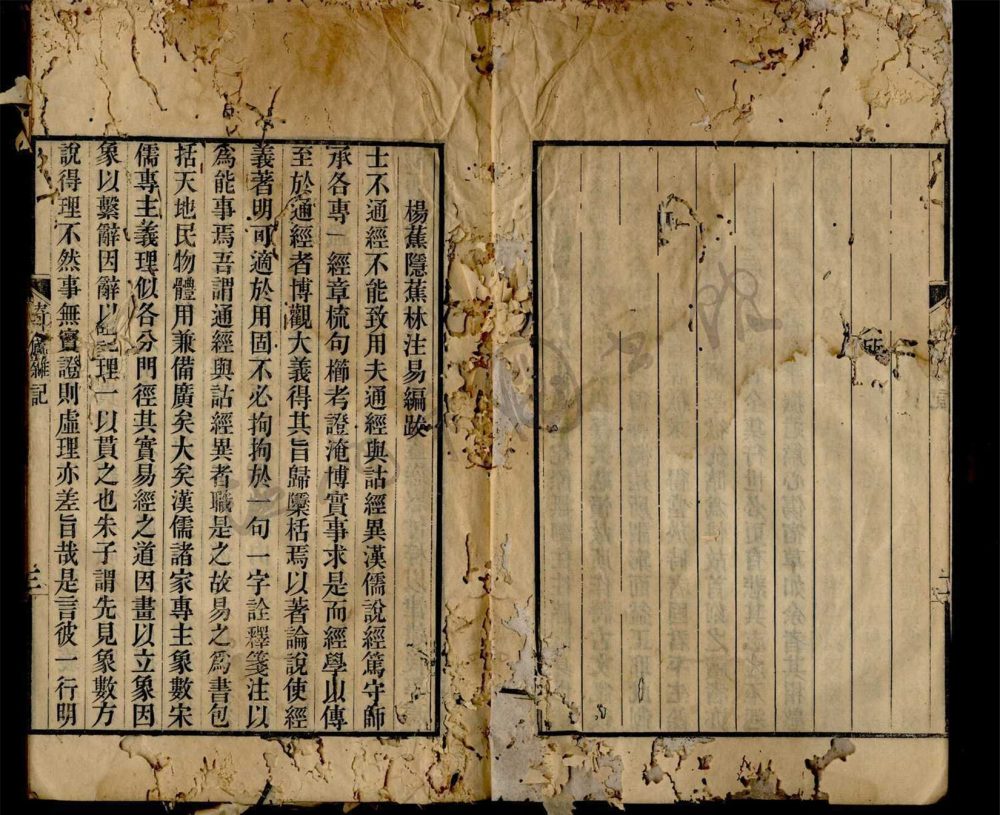 楊蕉隱蕉林注易編跋
士不通經不能致用夫通經與詁經異漢儒說經篤守師
承各專一經章梳句櫛考證淹博實事求是而經學以傳
至於通經者博觀大義得其旨歸檃栝焉以著論說使經
義著明可適於用固不必拘拘於一句一字詮釋箋注以
爲能事焉吾謂通經與詁經異者職是之故易之爲書包
括天地民物體用兼備廣矣大矣漢儒諸家專主象數宋
儒專主義理似各分門徑其實易經之道因畫以立象因
象以繫辭因辭以理一以貫之也朱子謂先見象數方
說得理不然事無實證則虛理亦差旨哉是言彼一行明
廬雜記
三